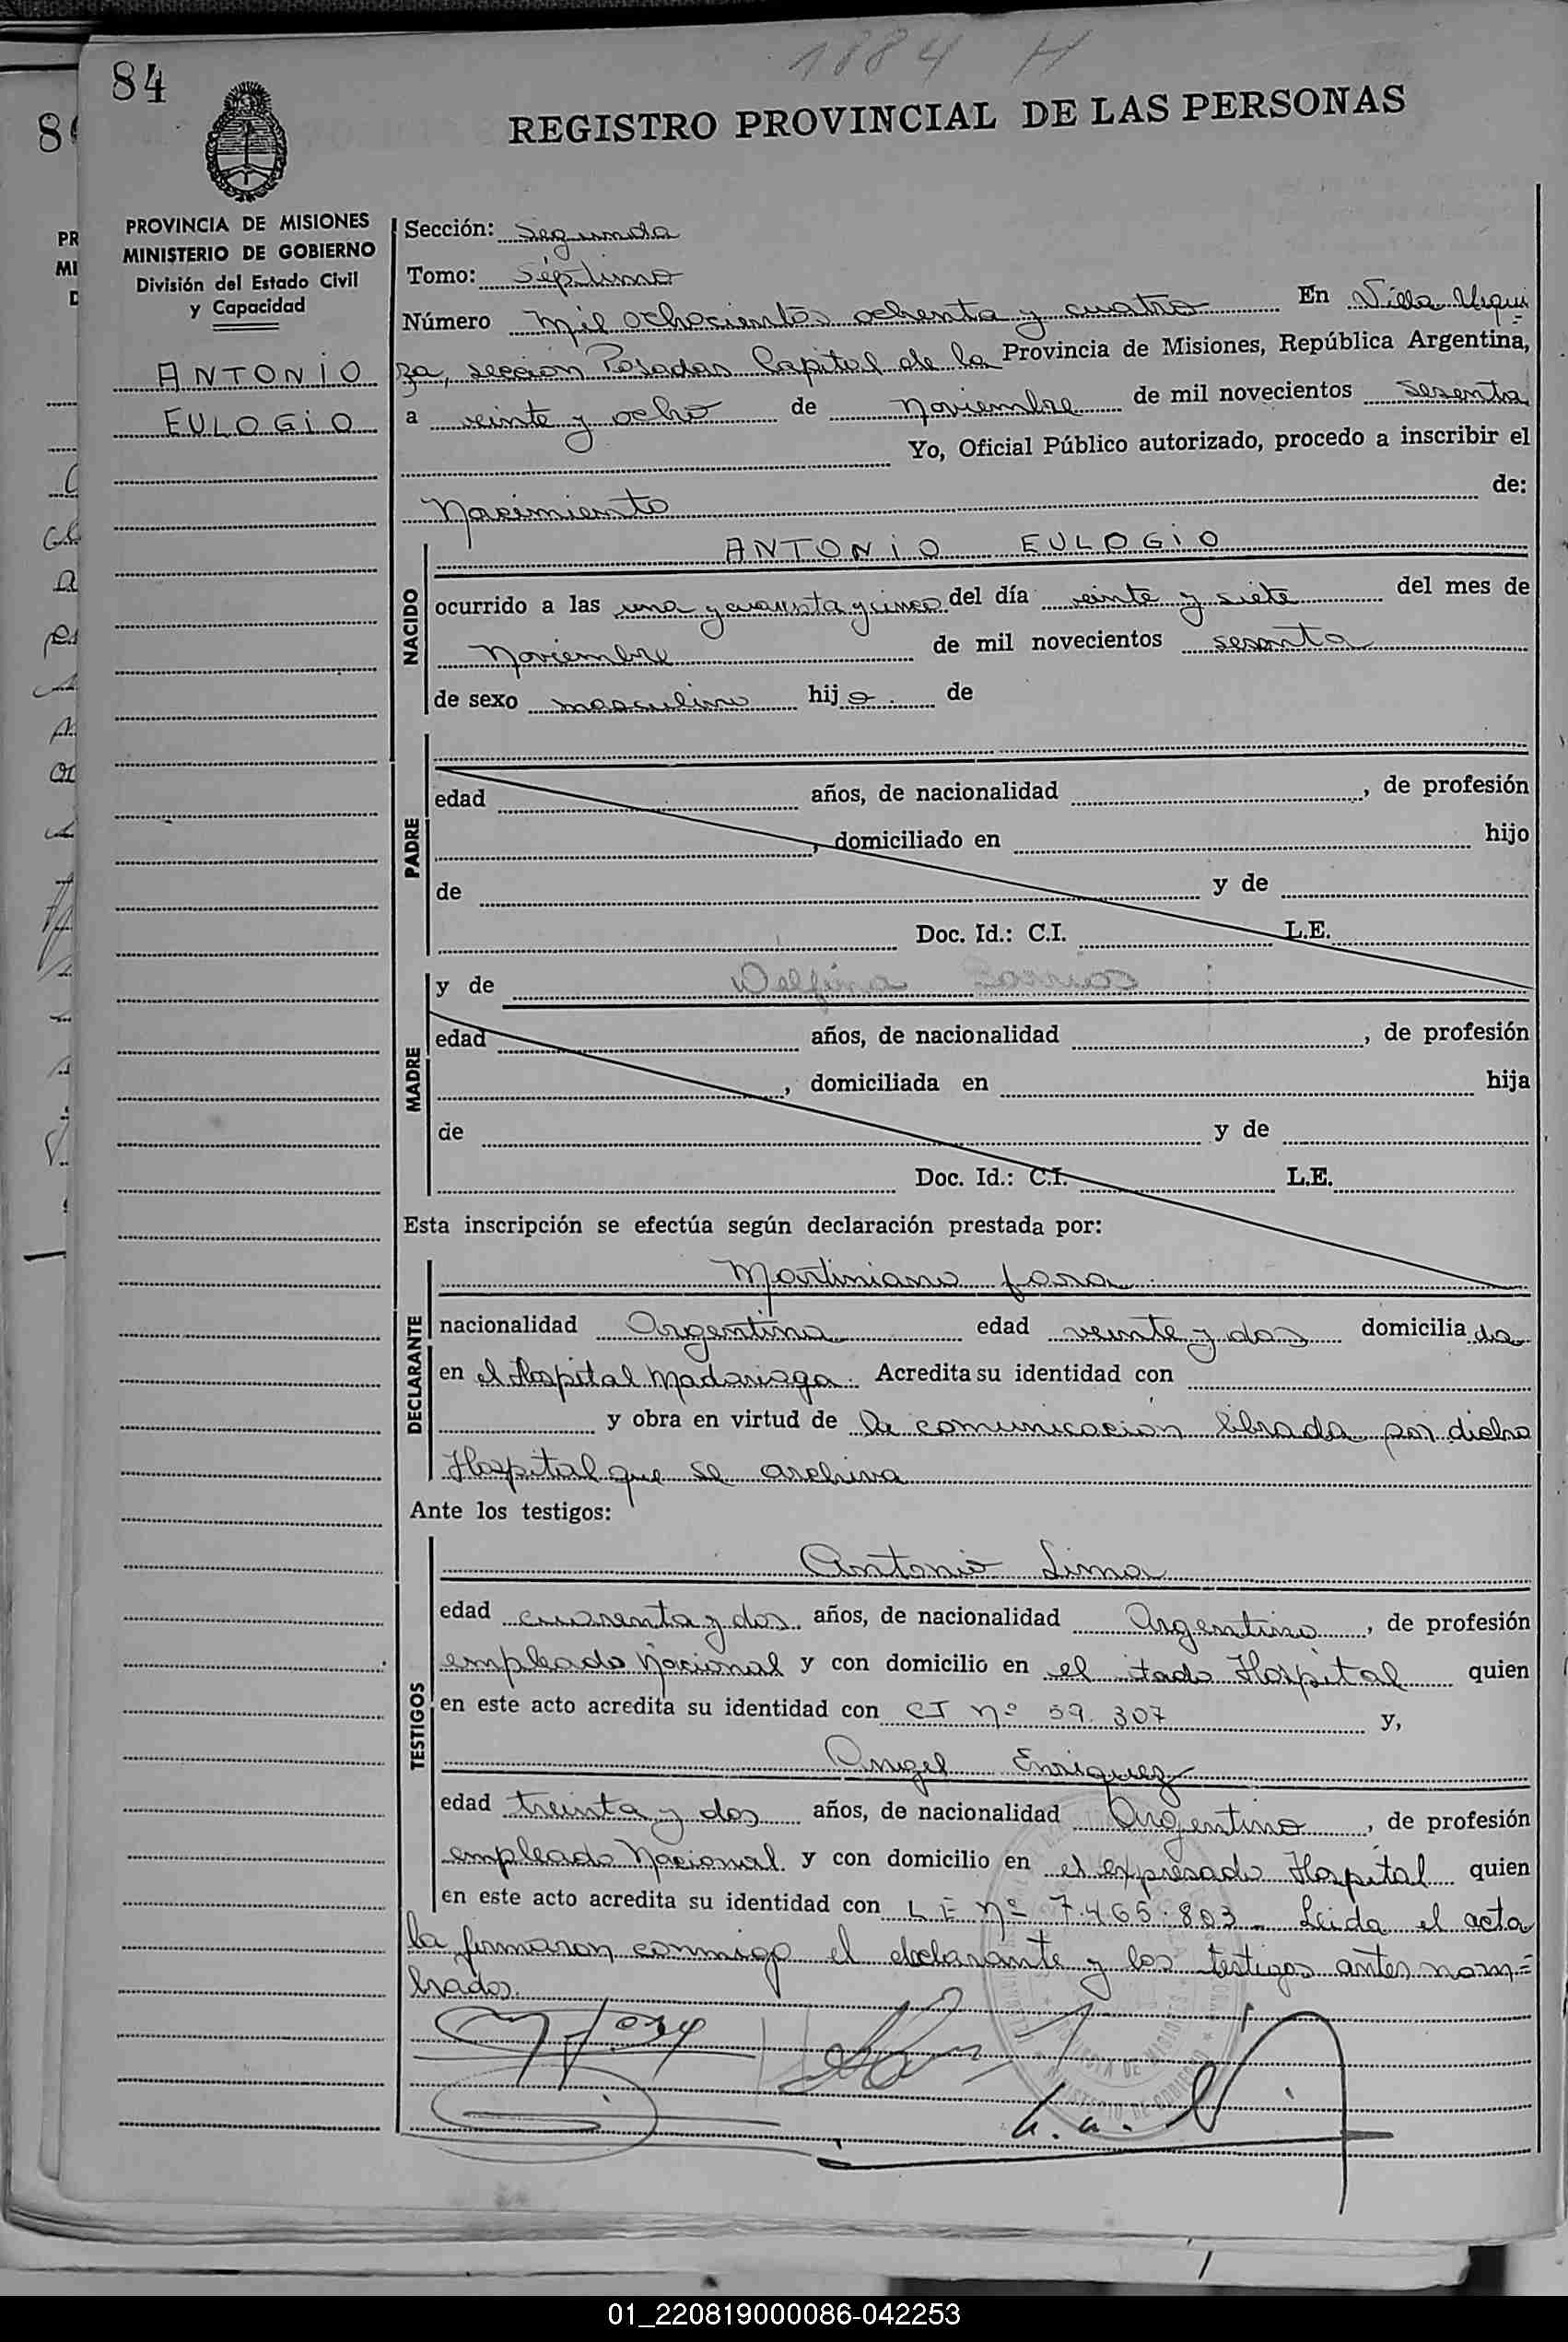 1884 H
84
REGISTRO PROVINCIAL DE LAS PERSONAS
PROVINCIA DE MISIONES
MINISTERIO DE GOBIERNO
División del Estado Civil
y Capacidad
ANTONIO
EULOGIO
Sección: Segunda
Tomo: Séptimo
Número mil ochocientos ochenta y cuatro En Villa Urqui
za, sección Posadas Capital de la Provincia de Misiones, República Argentina,
a veinte y ocho de Noviembre de mil novecientos sesenta
Yo, Oficial Público autorizado, procedo a inscribir el
Nacimiento de:
ANTONIO EULOGIO
NACIDO
ocurrido a las una y cuarenta y cinco del día veinte y siete del mes de
Noviembre de mil novecientos sesenta
de sexo masculino hijo de
PADRE
edad años, de nacionalidad , de profesión
, domiciliado en hijo
de y de
Doc. Id.: C.I. L.E.
y de Delfina Barrios
MADRE
edad años, de nacionalidad , de profesión
, domiciliada en hija
de y de
Doc. Id.: C.I. L.E.
Esta inscripción se efectúa según declaración prestada por:
DECLARANTE
Martiniano
nacionalidad Argentina edad veinte y dos domicilia da
en el Hospital Madariaga. Acredita su identidad con
y obra en virtud de la comunicación librada por dicho
Hospital que se archiva
Ante los testigos:
TESTIGOS
Antonio Lima
edad cuarenta y dos años, de nacionalidad Argentino, de profesión
empleado Nacional y con domicilio en el Hospital quien
en este acto acredita su identidad con CI Nº 59.307 y,
Angel Enriquez
edad treinta y dos años, de nacionalidad Argentino, de profesión
empleado Nacional y con domicilio en el expresado Hospital quien
en este acto acredita su identidad con LE Nº 7.465.803. Leida el acta
la firmaron conmigo el declarante y los testigos antes nom=
brados.
01_220819000086-042253